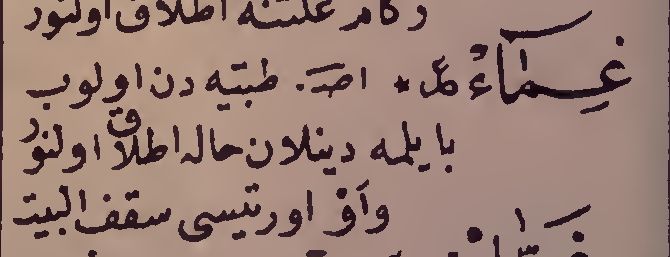 زكام علتنه اطلاق اولنور
غماء ع * اصـ. طبيه دن اولوب
بايلمه دينلان حاله اطلاق اولنور
واو اورتيسى سقف البيت